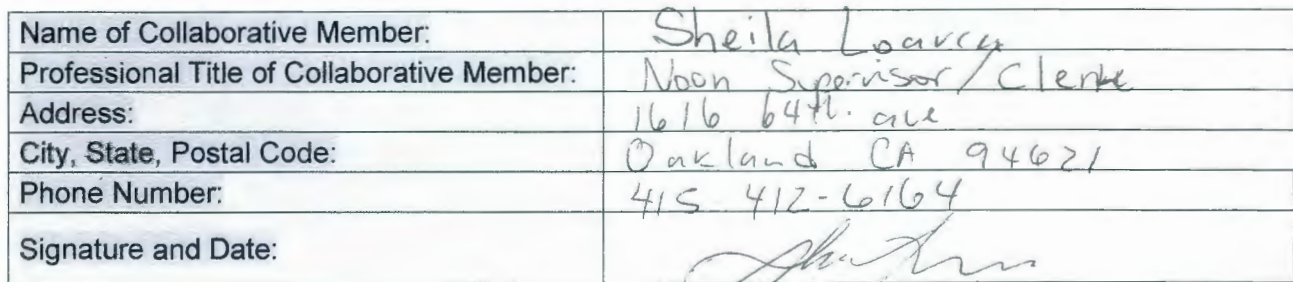 Name of Collaborative Member: Sheila Loarca
Professional Title of Collaborative Member: Noon Supervisor/Clerk
Address: 1616 64th. ave
City, State, Postal Code: Oakland CA 94621
Phone Number: 415 412-6164
Signature and Date: